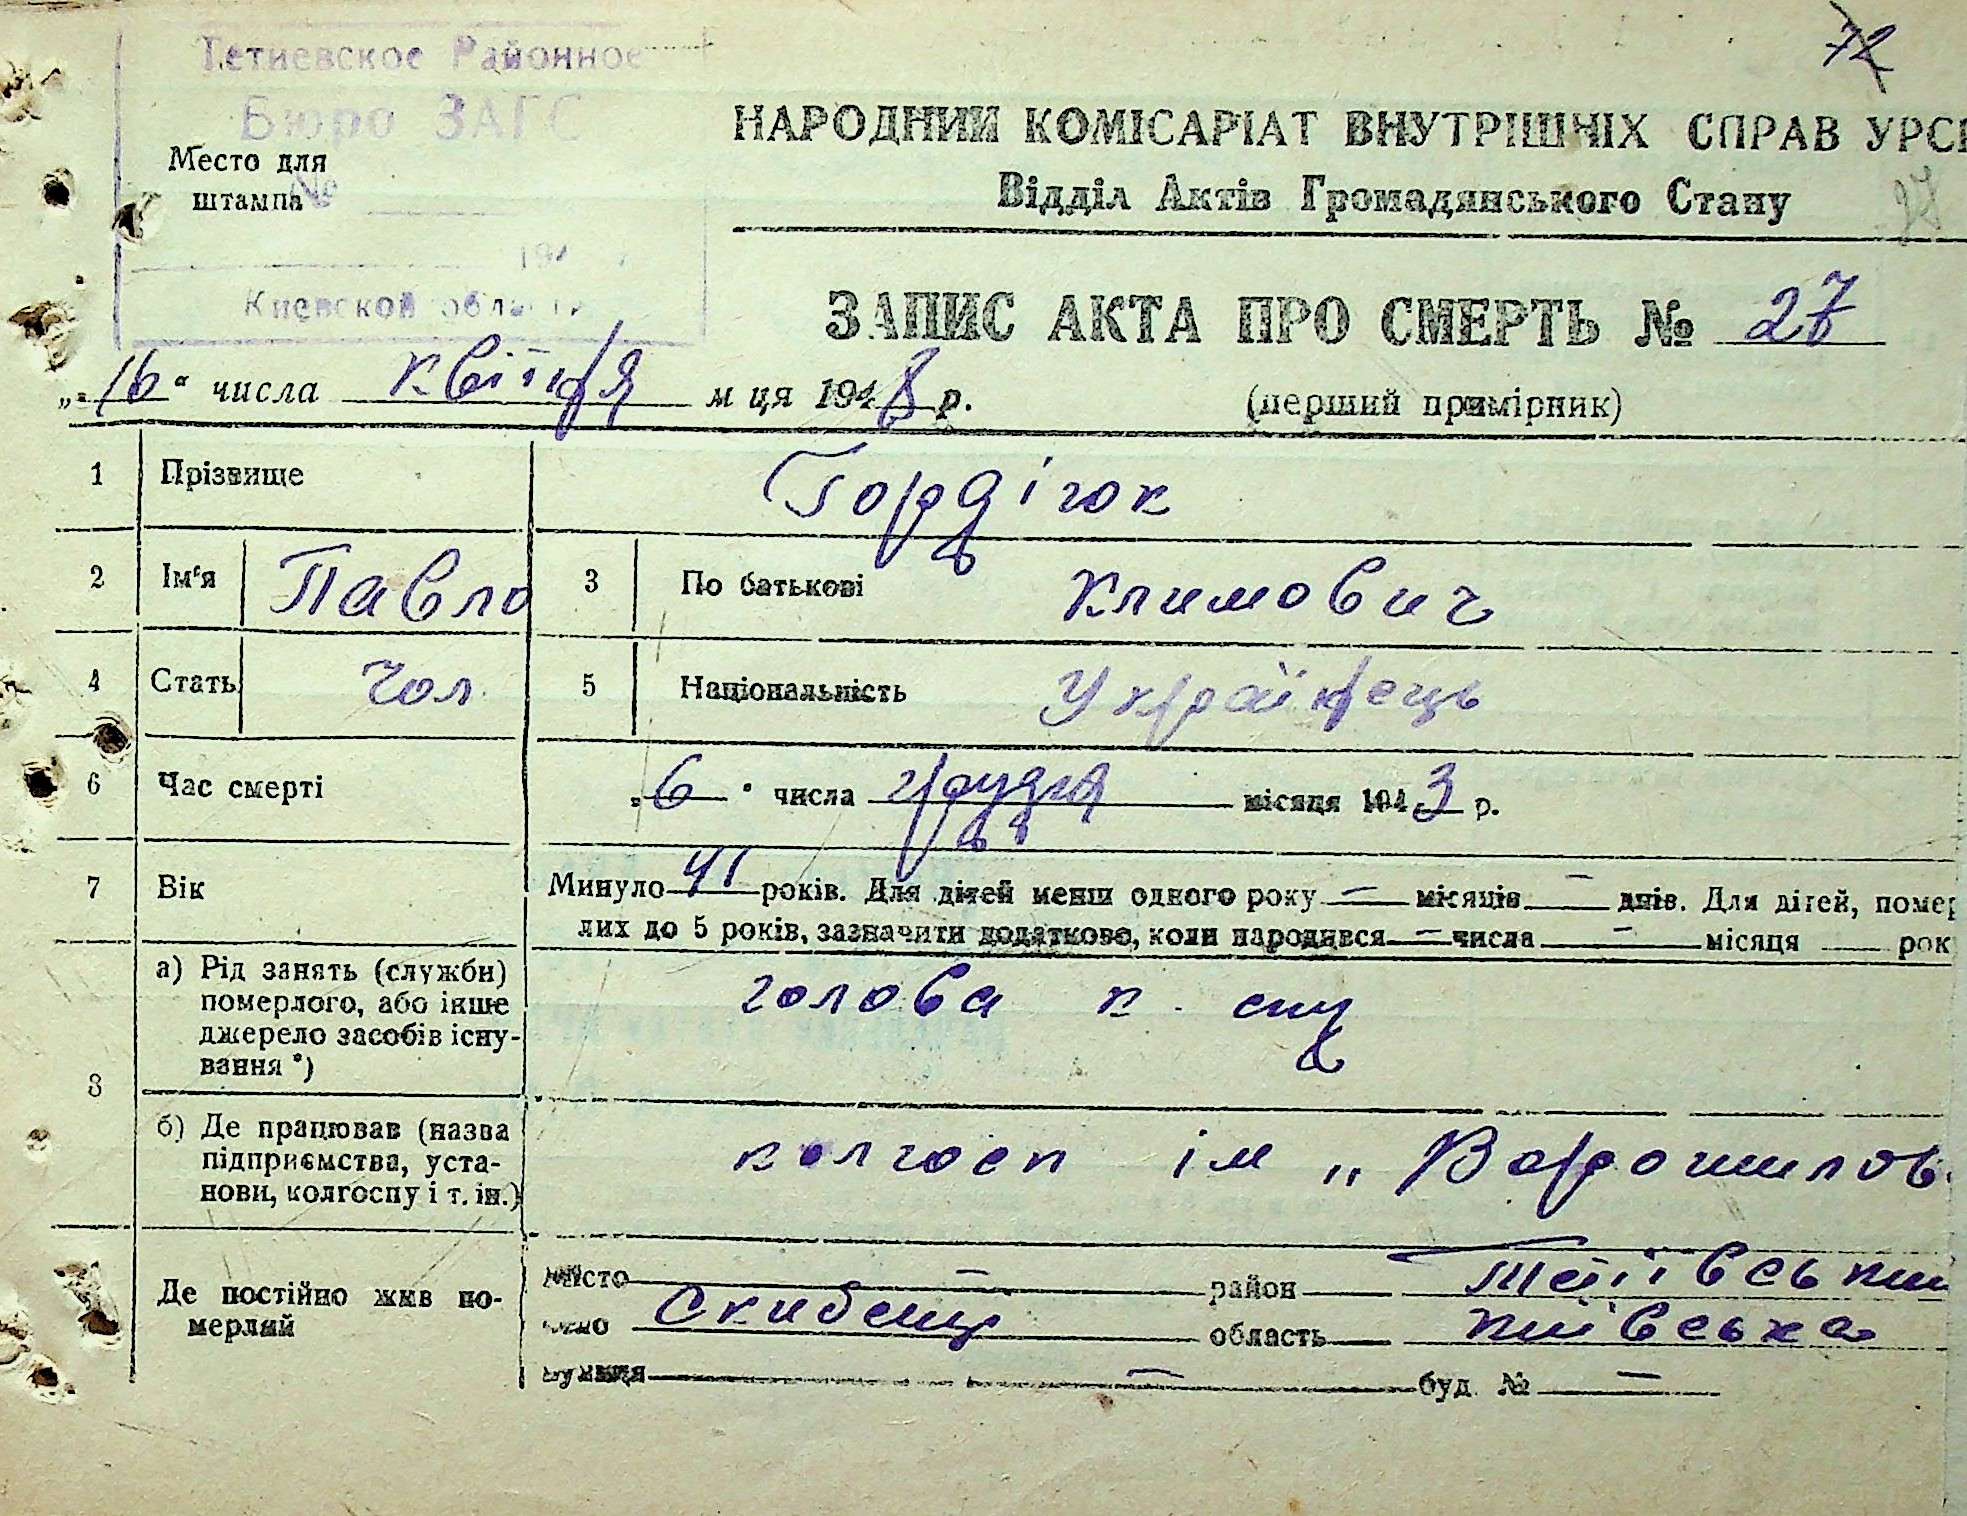 72
Тетиевское Районное
Бюро ЗАГС
Место для
штампа
№
194
Киевской области
НАРОДНИЙ КОМІСАРІАТ ВНУТРІШНІХ СПРАВ УРСР
Відділ Актів Громадянського Стану
ЗАПИС АКТА ПРО СМЕРТЬ № 27
„16“ числа квітня м ця 1948 р.
(перший примірник)
1 Прізвище Гордіюк
2 Ім'я Павло 3 По батькові Климович
4 Стать Чол 5 Національність Українець
6 Час смерті „6“ числа грудня місяця 1943 р.
7 Вік Минуло 41 років. Для дітей менш одного року — місяців — днів. Для дітей, помер
лих до 5 років, зазначити додатково, коли народився — числа — місяця рок
8 а) Рід занять (служби)
померлого, або інше
джерело засобів існу-
вання *)
голова к. спу
б) Де працював (назва
підприємства, уста-
нови, колгоспу і т. ін.)
колгосп ім „Ворошилов
Де постійно жив по-
мерлий
місто — район Тетіївський
село Скибенці область київська
вулиця — буд № —